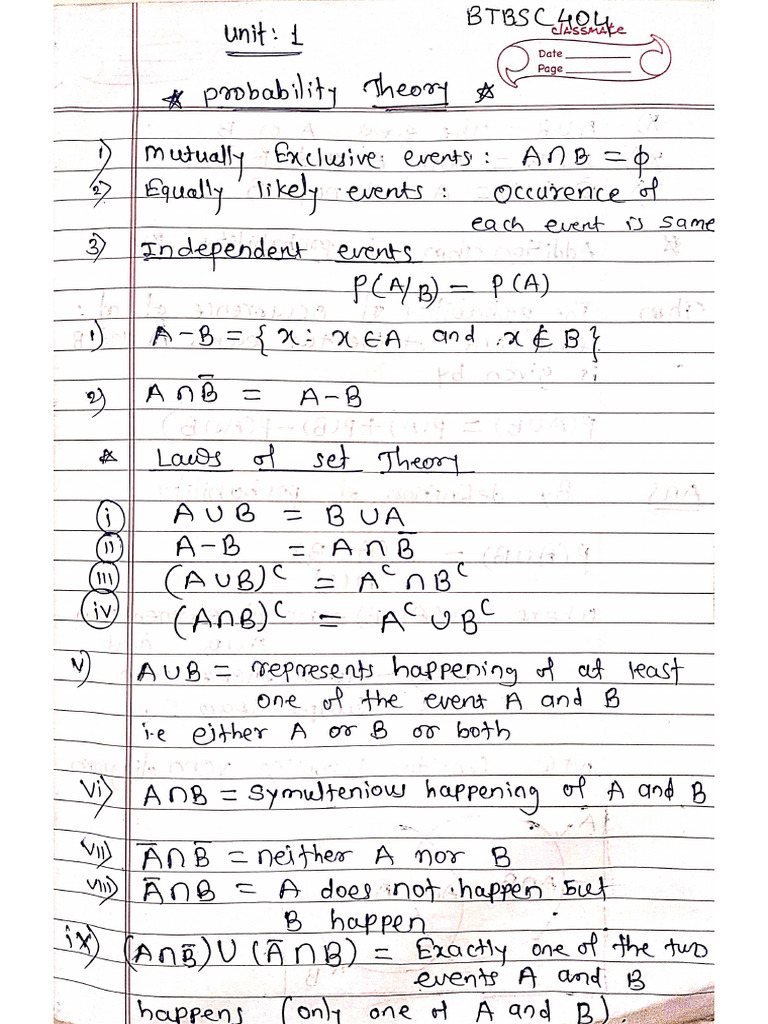 BTBSC404
Unit: 1
classmate
Date
Page
☆ probability Theory ☆
1) Mutually Exclusive events : A∩B = ϕ
2) Equally likely events : occurence of
each event is same
3) Independent events
P(A/B) = P(A)
1) A-B = {x: x∈A and x∉B}
2) A∩B̅ = A-B
☆ Laws of set Theory
i A∪B = B∪A
ii A-B = A∩B̅
iii (A∪B)ᶜ = Aᶜ∩Bᶜ
iv (A∩B)ᶜ = Aᶜ∪Bᶜ
v) A∪B = represents happening of at least
one of the event A and B
i.e either A or B or both
vi) A∩B = Symultenious happening of A and B
vii) A̅∩B̅ = neither A nor B
viii) A̅∩B = A does not happen but
B happen
ix) (A∩B̅)∪(A̅∩B) = Exactly one of the two
events A and B
happens (only one of A and B).